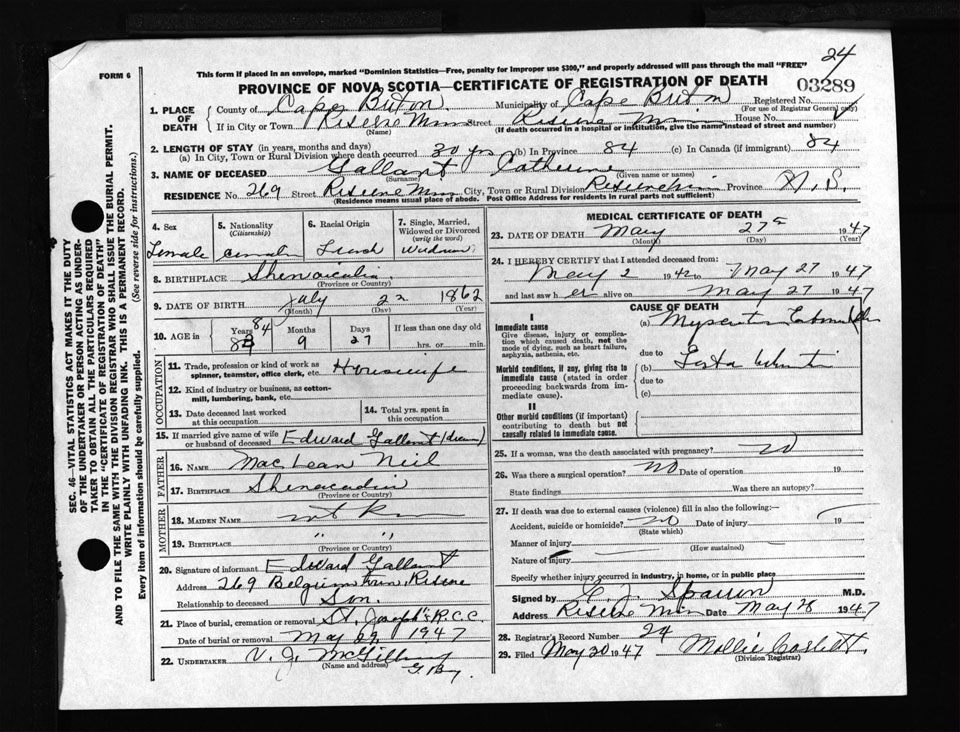 24
FORM 6
This form if placed in an envelope, marked "Dominion Statistics—Free, penalty for improper use $300," and properly addressed will pass through the mail "FREE"
PROVINCE OF NOVA SCOTIA—CERTIFICATE OF REGISTRATION OF DEATH
03289
1. PLACE OF DEATH
County of Cape Breton Municipality of Cape Breton Registered No.
(For use of Registrar General only)
If in City or Town Reserve Mines Street Reserve Mines House No.
(Name) (If death occurred in a hospital or institution, give the name instead of street and number)
2. LENGTH OF STAY (in years, months and days)
(a) In City, Town or Rural Division where death occurred 30 yrs (b) In Province 84 (c) In Canada (if immigrant) 84
3. NAME OF DECEASED Gallant Catherine
(Surname) (Given name or names)
RESIDENCE No. 269 Street Reserve Mines City, Town or Rural Division Province N. S.
(Residence means usual place of abode. Post Office Address for residents in rural parts not sufficient)
4. Sex
Female
5. Nationality
(Citizenship)
6. Racial Origin
French
7. Single, Married, Widowed or Divorced
(write the word)
Widow
8. BIRTHPLACE Shenacadia
(Province or Country)
9. DATE OF BIRTH July 22 1862
(Month) (Day) (Year)
10. AGE in Years 84 Months 9 Days 27 If less than one day old
hrs. or min.
OCCUPATION
11. Trade, profession or kind of work as spinner, teamster, office clerk, etc. Housewife
12. Kind of industry or business, as cotton-mill, lumbering, bank, etc.
13. Date deceased last worked at this occupation
14. Total yrs. spent in this occupation
15. If married give name of wife or husband of deceased Edward Gallant
FATHER
16. NAME MacLean Neil
17. BIRTHPLACE Shenacadia
(Province or Country)
MOTHER
18. MAIDEN NAME
19. BIRTHPLACE " "
(Province or Country)
20. Signature of informant Edward Gallant
Address 269 Belgium Town Reserve
Relationship to deceased Son.
21. Place of burial, cremation or removal St. Joseph's R.C.C.
Date of burial or removal May 29, 1947
22. UNDERTAKER V. J. McGillivray
(Name and address) G. Bay
MEDICAL CERTIFICATE OF DEATH
23. DATE OF DEATH May 27 1947
(Month) (Day) (Year)
24. I HEREBY CERTIFY that I attended deceased from:
May 2 194 to May 27 1947
and last saw h er alive on May 27 1947
CAUSE OF DEATH
I
Immediate cause
Give disease, injury or complication which caused death, not the mode of dying, such as heart failure, asphyxia, asthenia, etc.
(a)
due to
Morbid conditions, if any, giving rise to immediate cause (stated in order proceeding backwards from immediate cause).
(b)
due to
(c)
II
Other morbid conditions (if important) contributing to death but not causally related to immediate cause.
25. If a woman, was the death associated with pregnancy? no
26. Was there a surgical operation? no Date of operation 19
State findings Was there an autopsy?
27. If death was due to external causes (violence) fill in also the following:—
Accident, suicide or homicide? no Date of injury 19
(State which)
Manner of injury
(How sustained)
Nature of injury
Specify whether injury occurred in industry, in home, or in public place
Signed by M.D.
Address Reserve Mines Date May 28 1947
28. Registrar's Record Number 24
29. Filed May 30 1947 Mollie Corbett
(Division Registrar)
SEC. 46—VITAL STATISTICS ACT MAKES IT THE DUTY OF THE UNDERTAKER OR PERSON ACTING AS UNDERTAKER TO OBTAIN ALL THE PARTICULARS REQUIRED IN THE "CERTIFICATE OF REGISTRATION OF DEATH" AND TO FILE THE SAME WITH THE DIVISION REGISTRAR WHO SHALL ISSUE THE BURIAL PERMIT.
WRITE PLAINLY WITH UNFADING INK. THIS IS A PERMANENT RECORD.
Every item of information should be carefully supplied. (See reverse side for instructions.)